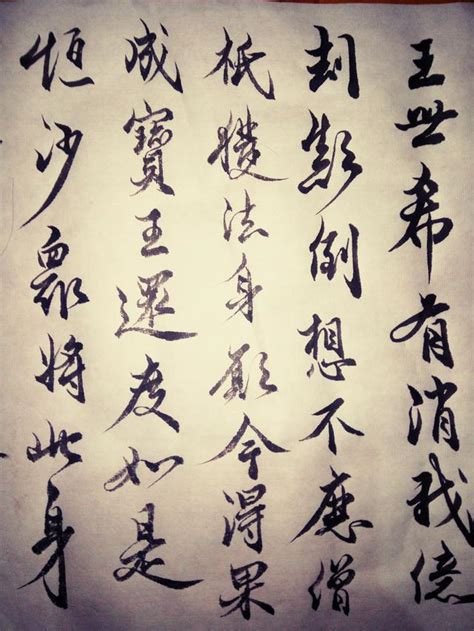 王世希有消我億
刦顛倒想不應僧
祇獲法身願今得果
成寶王還度如是
恆沙眾將此身